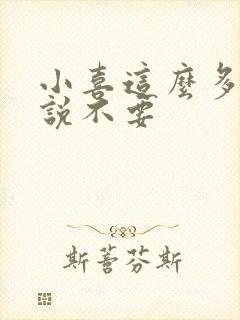 小喜這麼多
說不要
斯蕾芬斯